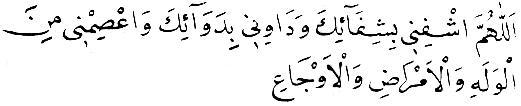 اَللّٰهُمَّ اشْفِنِيْ بِشِفَآئِكَ وَدَاوِنِيْ بِدَوَآئِكَ وَاعْصِمْنِيْ مِنَ
الْوَلَهِ وَالْاَمْرَاضِ وَالْاَوْجَاعِ